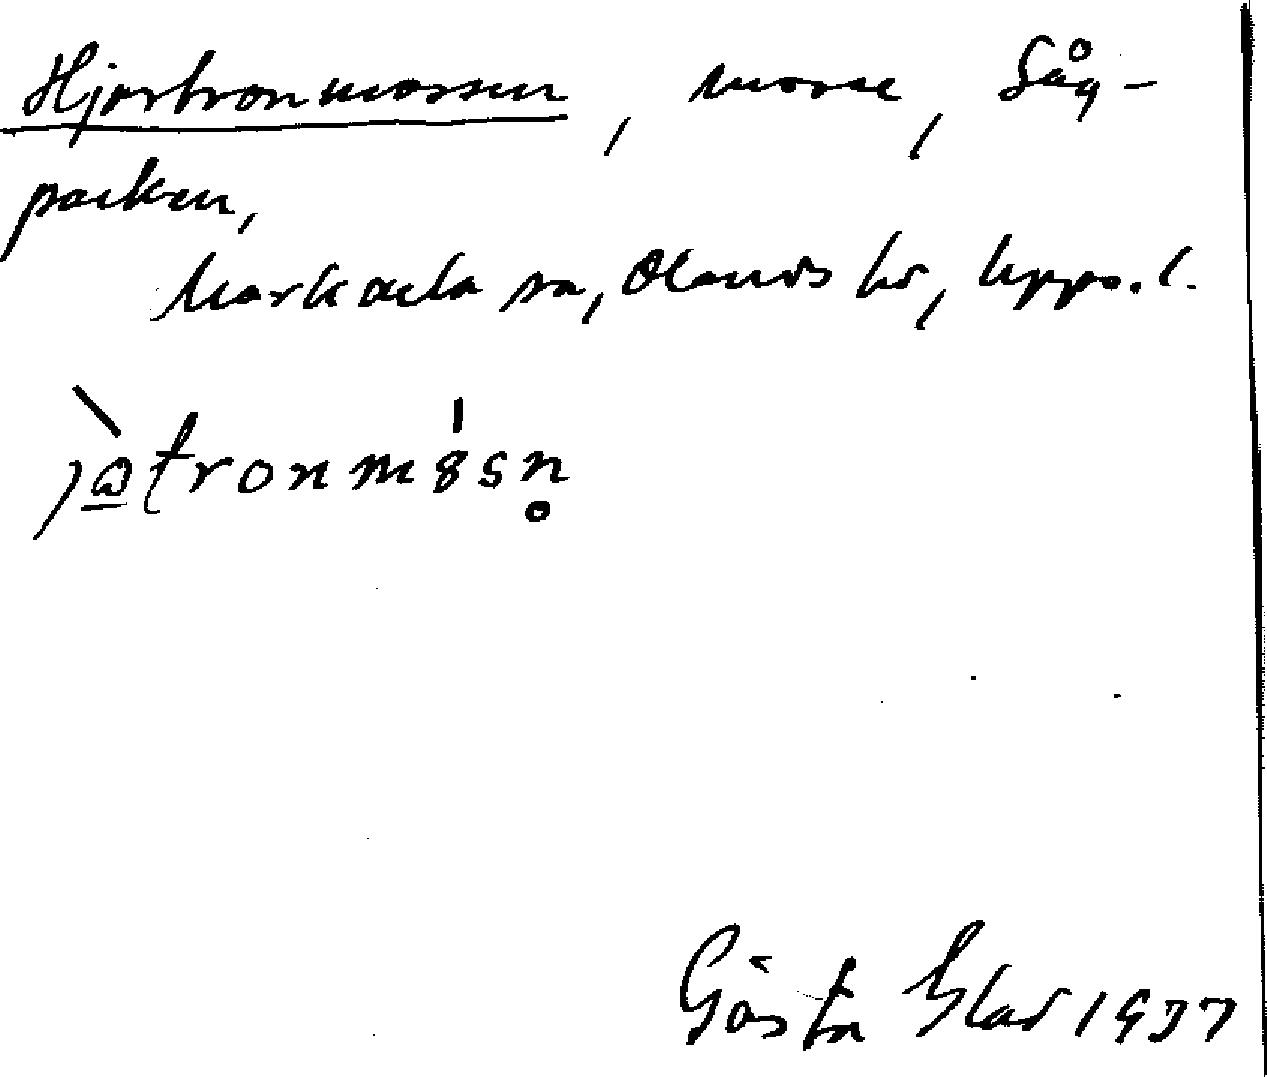 Hjortronmossen, mosse, Såg-
packen,
Markaela sn, Olands hd, Upps. l.
jɷtronm8sn̥
Gösta 1937